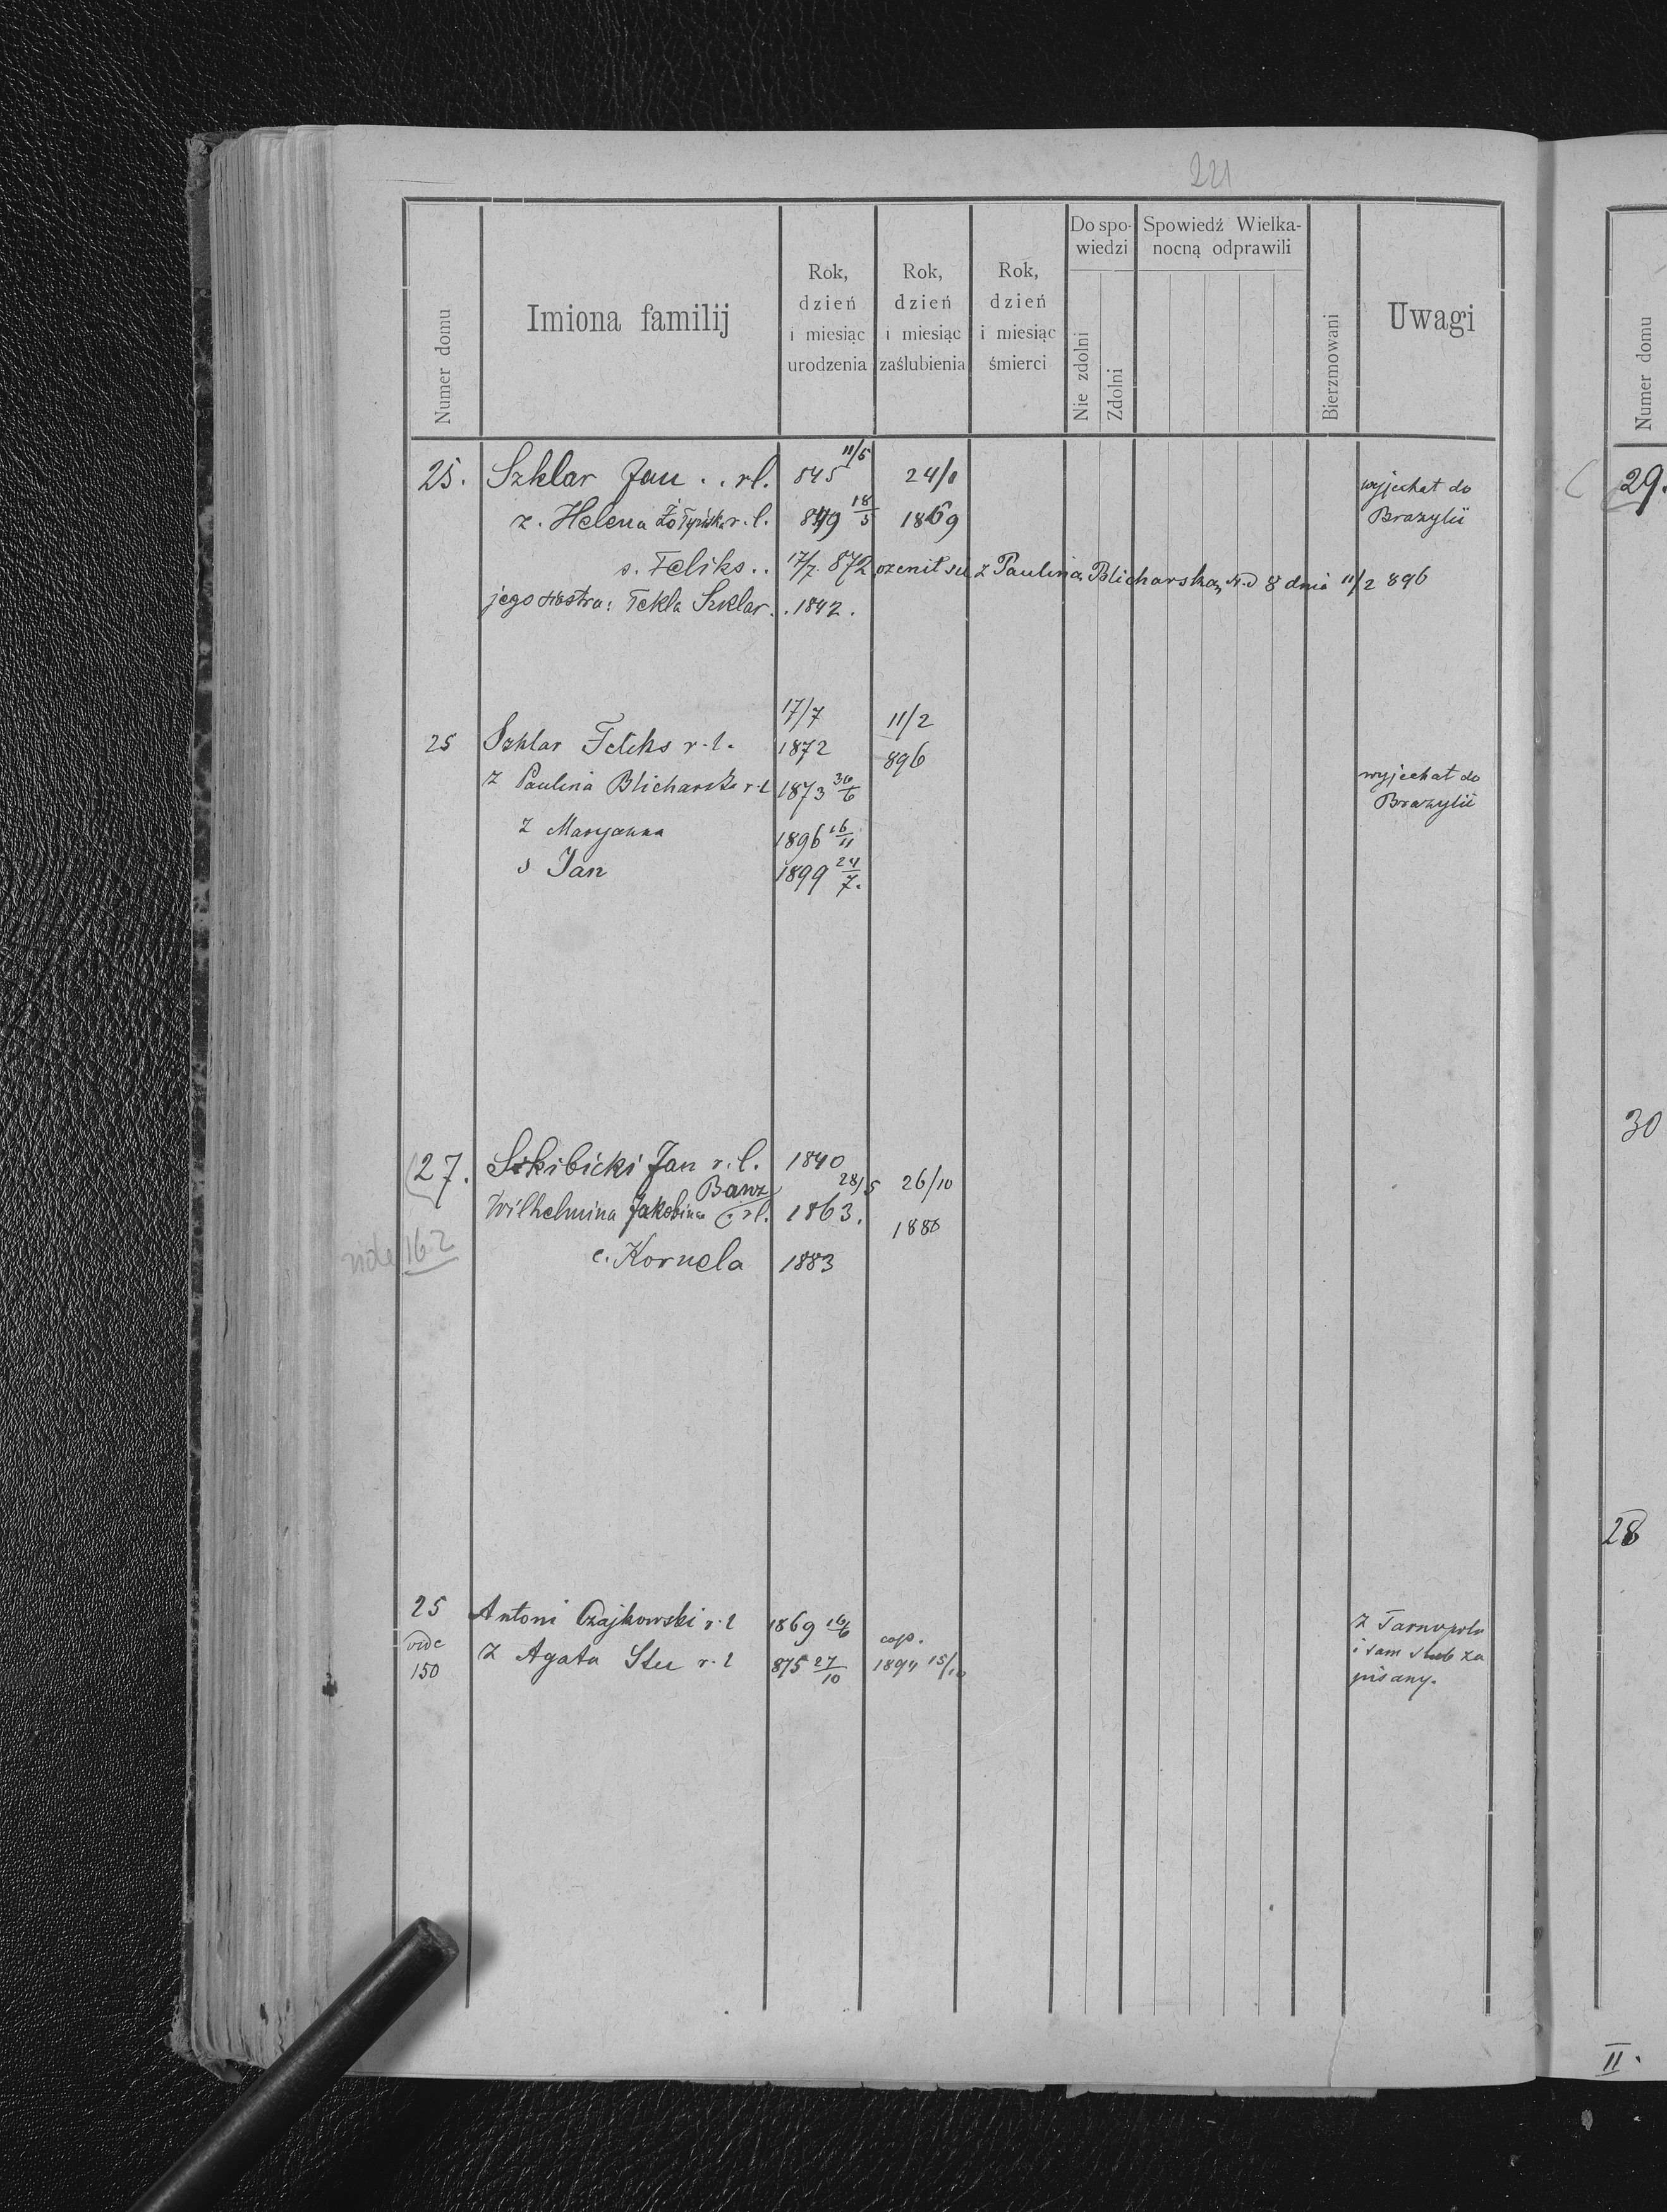 221
Numer domu
Imiona familij
Rok, dzień i miesiąc urodzenia
Rok, dzień i miesiąc zaślubienia
Rok, dzień i miesiąc śmierci
Do spo-wiedzi
Nie zdolni
Zdolni
Spowiedź Wielka-nocną odprawili
Bierzmowani
Uwagi
Numer domu
25. Szklar Jan .. rl. 845 11/5 24/1 wyjechał do
z. Helena r.l. 849 18/5 1869 Brazylii
s. Feliks .. 17/7. 872 ozenił się z Pauliną Blicharską N.d 8 dnia 11/2 896
jego siostra: Tekla Szklar. . 1842.
17/7 11/2
25 Szklar Feliks r.l. 1872 896
z Paulina Blicharska r.l 1873 30/6 wyjechał do
Brazylii
z Maryanna 1896 16/11
s Jan 1899 24/7.
27. Skibicki Jan r.l. 1840
Banz 28/5 26/10
Wilhelmina Jakobina rl. 1863. 1880
vide 162 c. Kornela 1883
25 Antoni Czajkowski r.l 1869 z Tarnopola
vide cop. i tam ślub za
150 z Agata Stu r.l 875 27/10 1894 15/10 pisany.
29.
30
28
II.